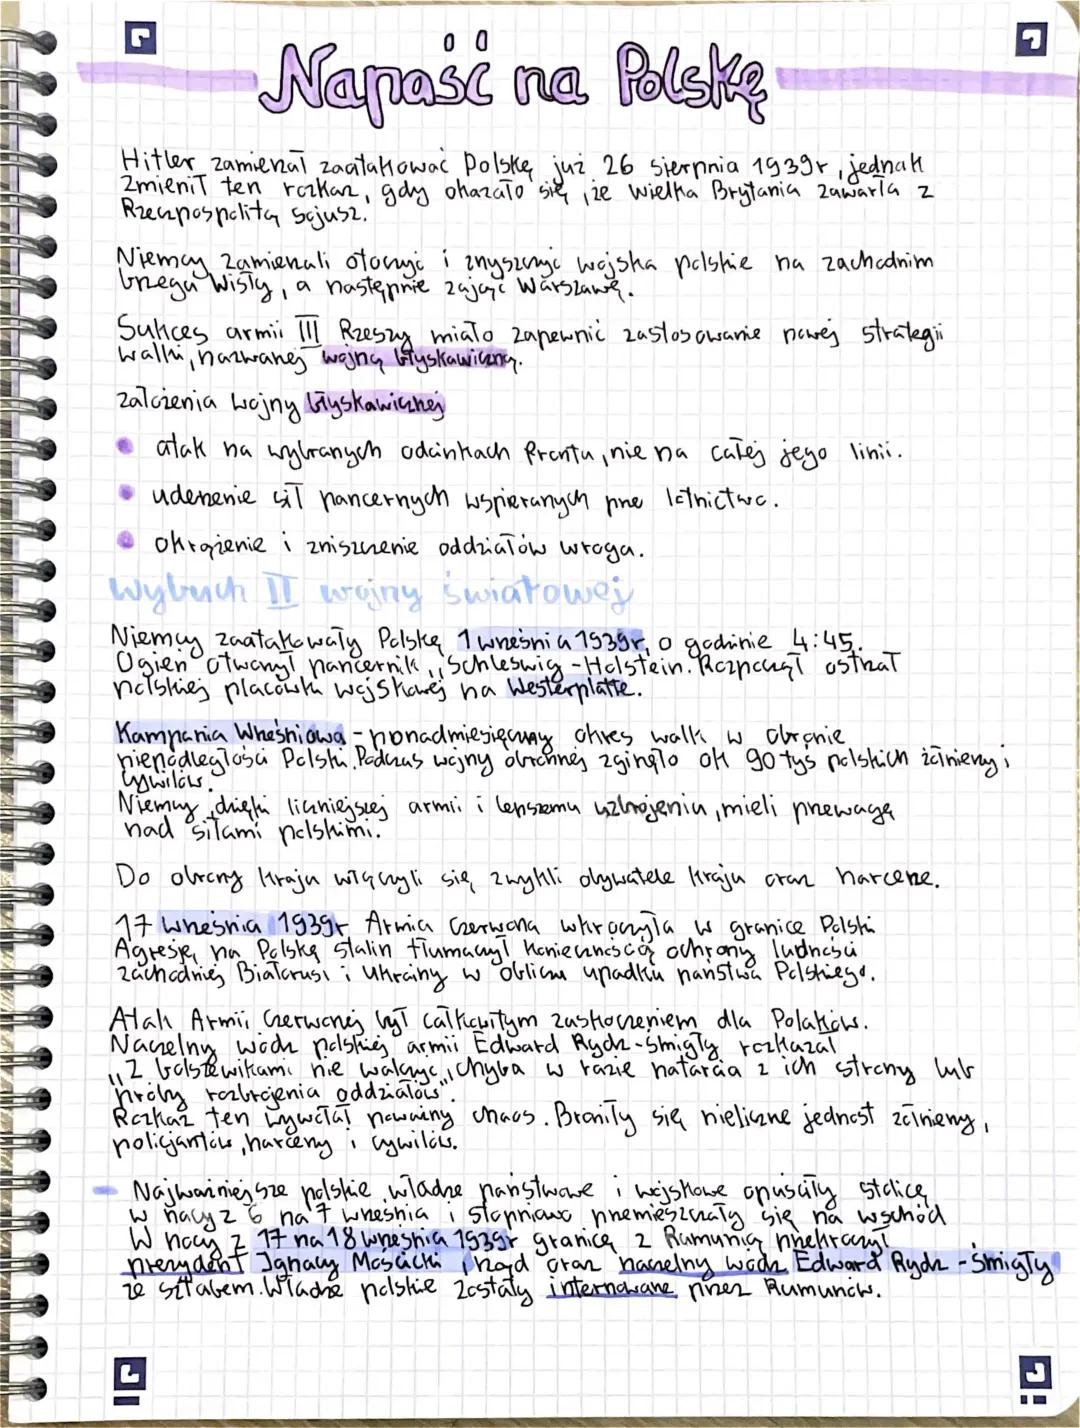 Napaść na Polskę
Hitler zamierzał zaatakować Polskę już 26 sierpnia 1939r, jednak
zmienił ten rozkaz, gdy okazało się, że Wielka Brytania zawarła z
Rzeczpospolitą sojusz.
Niemcy zamierzali otoczyć i zniszczyć wojska polskie na zachodnim
brzegu Wisły, a następnie zająć Warszawę.
Sukces armii III Rzeszy miało zapewnić zastosowanie nowej strategii
walki, nazwanej wojną błyskawiczną.
założenia wojny błyskawicznej
• atak na wybranych odcinkach frontu, nie na całej jego linii.
• uderzenie sił pancernych wspieranych prze lotnictwo.
• okrążenie i zniszczenie oddziałów wroga.
Wybuch II wojny światowej
Niemcy zaatakowały Polskę 1 września 1939r, o godzinie 4:45.
Ogień otworzył pancernik „Schleswig-Holstein. Rozpoczął ostrzał
polskiej placówki wojskowej na Westerplatte.
Kampania Wrześniowa - ponadmiesięczny okres walk w obronie
niepodległości Polski. Podczas wojny obronnej zginęło ok 90 tyś polskich żołnierzy i
cywilów.
Niemcy, dzięki liczniejszej armii i lepszemu uzbrojeniu, mieli przewagę
nad siłami polskimi.
Do obrony kraju włączyli się zwykli obywatele kraju oraz harcerze.
17 września 1939r Armia Czerwona wkroczyła w granice Polski
Agresję na Polskę Stalin tłumaczył koniecznością ochrony ludności
zachodniej Białorusi i Ukrainy w obliczu upadku państwa Polskiego.
Atak Armii Czerwonej był całkowitym zaskoczeniem dla Polaków.
Naczelny wódz polskiej armii Edward Rydz-Śmigły rozkazał
„Z bolszewikami nie walczyć, chyba w razie natarcia z ich strony lub
próby rozbrojenia oddziałów".
Rozkaz ten wywołał poważny chaos. Broniły się nieliczne jednost żołnierzy,
policjantów, harcerzy i cywilów.
- Najważniejsze polskie władze państwowe i wojskowe opuściły stolicę
w nocy z 6 na 7 września i stopniowo przemieszczały się na wschód
W nocy z 17 na 18 września 1939r granicę z Rumunią przekroczył
prezydent Ignacy Mościcki, rząd oraz naczelny wódz Edward Rydz-Śmigły
ze sztabem. Władze polskie zostały internowane przez Rumunów.